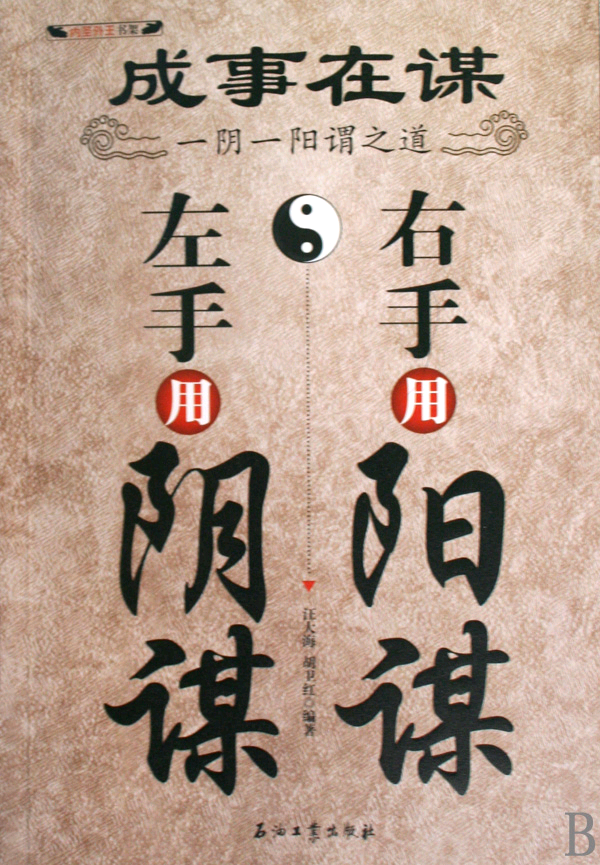 内圣外王书架
成事在谋
一阴一阳谓之道
左手用阴谋
右手用阳谋
汪大海 胡卫红◎编著
石油工业出版社
B